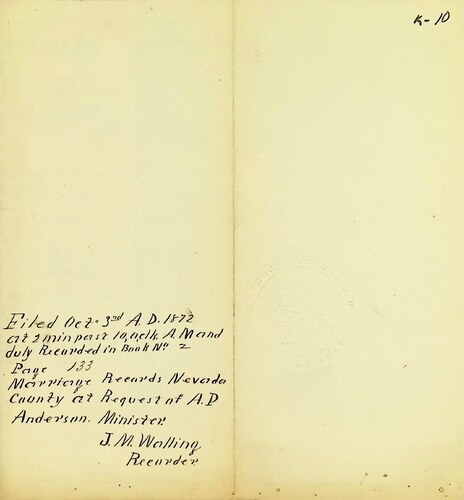 K-10
Filed Oct. 3rd A.D. 1872
at 2 min past 10, o,clk A.M and
duly Recorded in Book No 2
Page 133
Marriage Records Nevada
County at Request of A.D
Anderson. Minister
J. M. Walling
Recorder